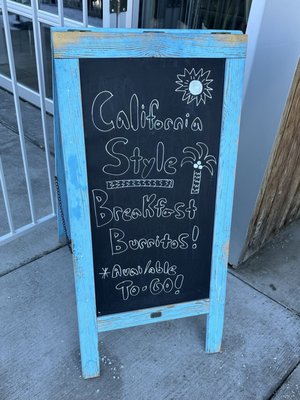 California
Style
Breakfast
Burritos!
*Available
To-Go!